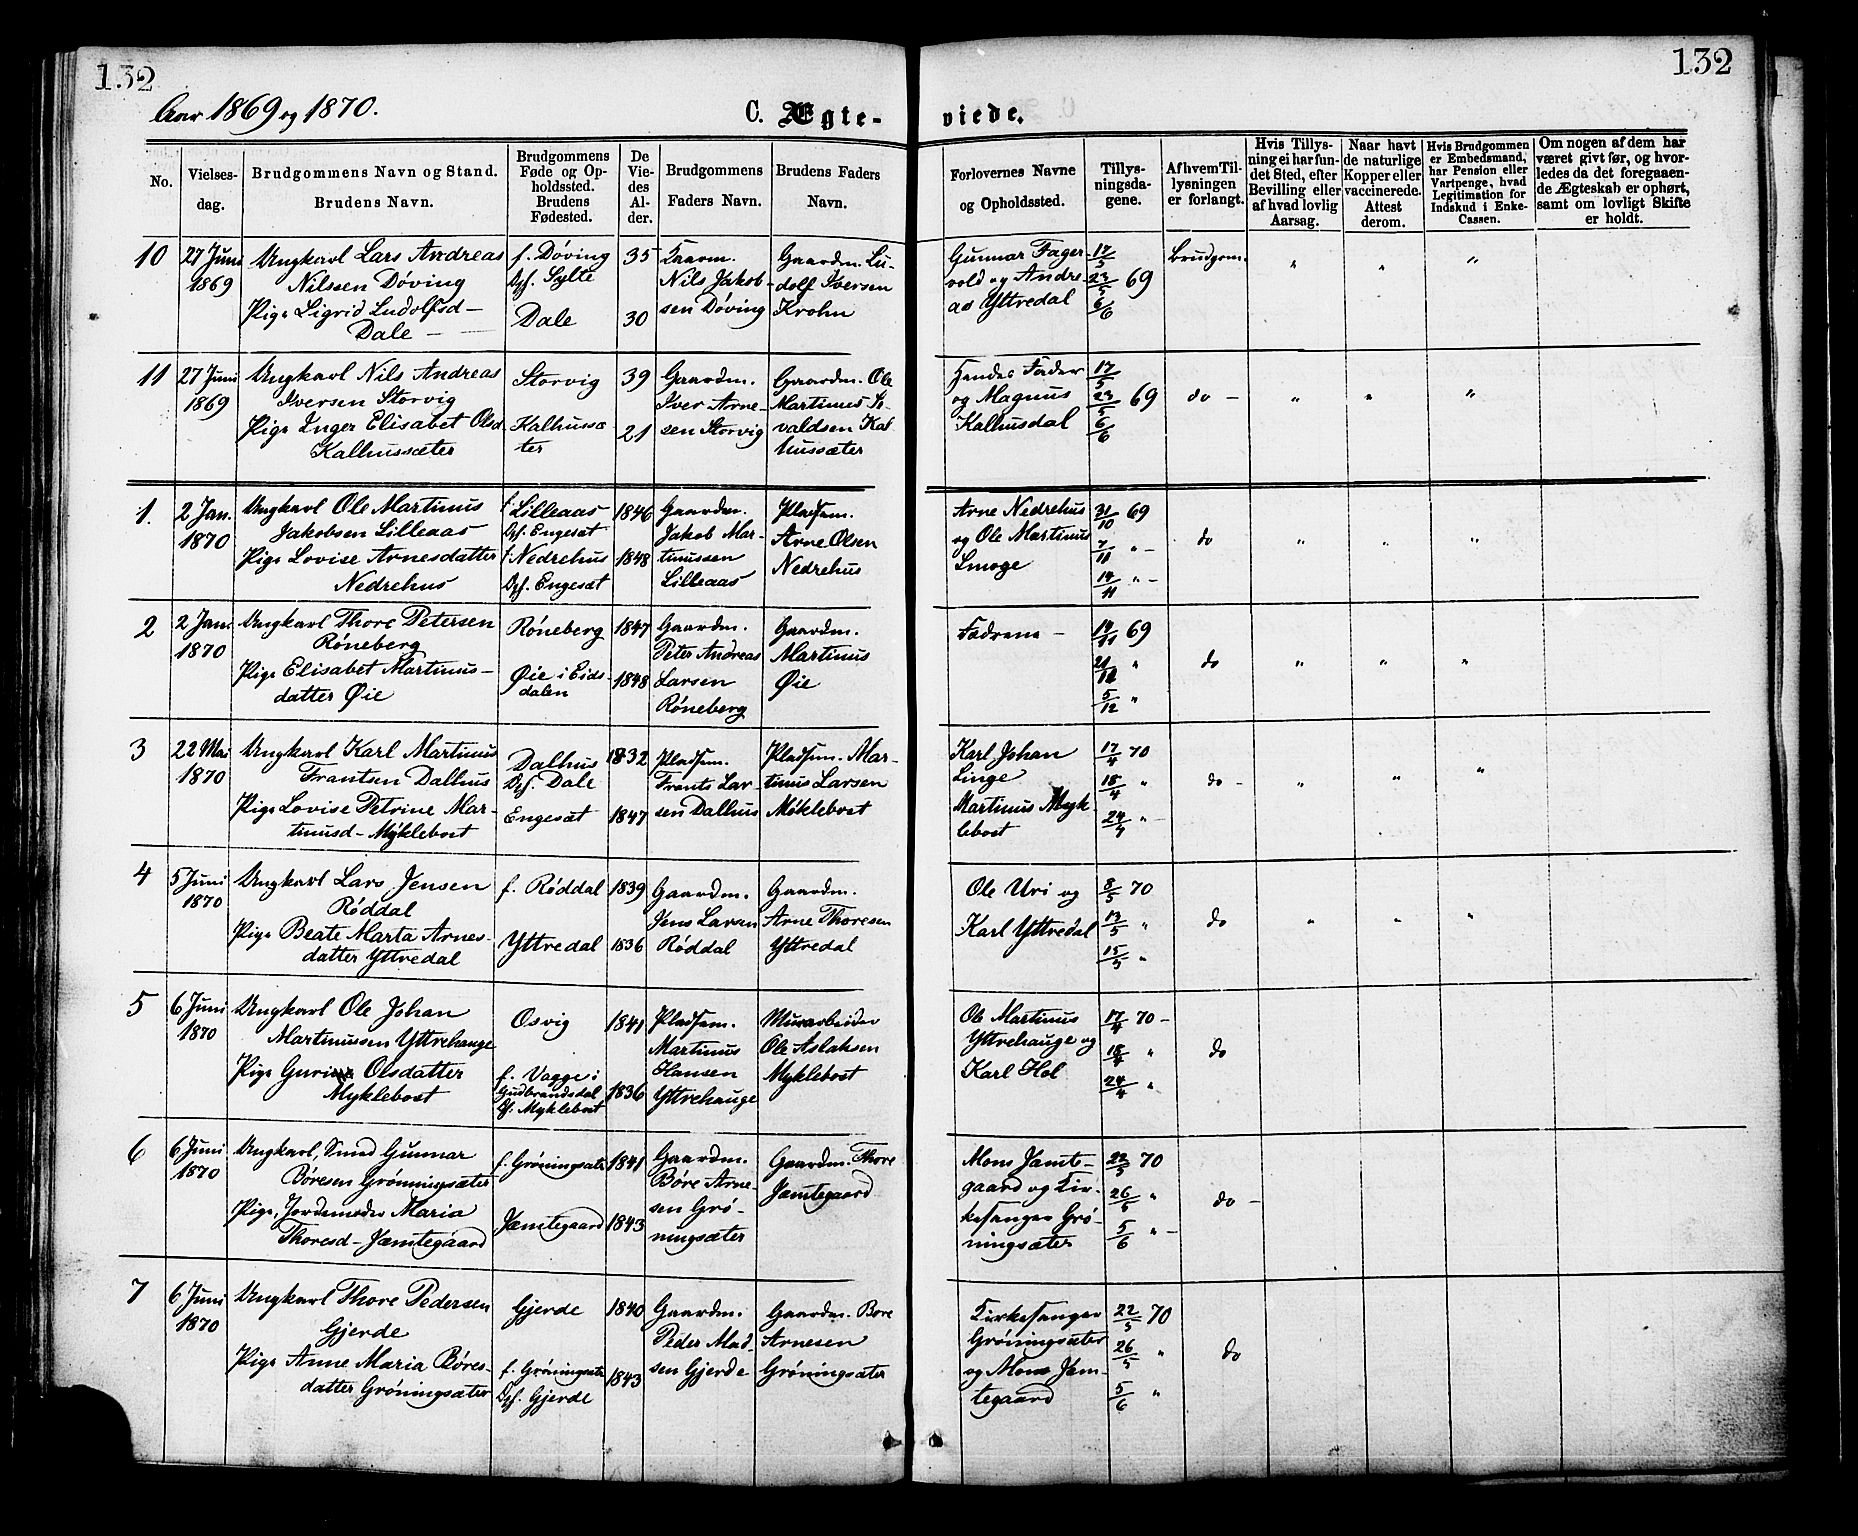 132
132
Aar 1869 og 1870.
C. Ægte-
viede.
No.
Vielses-
dag.
Brudgommens Navn og Stand.
Brudens Navn.
Brudgommens
Føde og Op-
holdssted.
Brudens
Fødested.
De
Vie-
des
Al-
der.
Brudgommens
Faders Navn.
Brudens Faders
Navn.
Forlovernes Navne
og Opholdssted.
Tillys-
ningsda-
gene.
Af hvem Til-
lysningen
er forlangt.
Hvis Tillys-
ning ei har fun-
det Sted, efter
Bevilling eller
af hvad lovlig
Aarsag.
Naar havt
de naturlige
Kopper eller
vaccinerede.
Attest
derom.
Hvis Brudgommen
er Embedsmand,
har Pension eller
Vartpenge, hvad
Legitimation for
Indskud i Enke-
Cassen.
Om nogen af dem har
været givt før, og hvor-
ledes da det foregaaen-
de Ægteskab er ophørt,
samt om lovligt Skifte
er holdt.
10
27 Juni
1869
Ungkarl Lars Andreas
Nilssen Döving
Pige Sigrid Ludolfsd-
Dale -
f. Döving
Opf. Sylte
Dale
35
30
Gaardm.
Nils Jakob-
sen Döving
Gaardm. Lu-
dolf Iversen
Krohn
Gunnar Fager-
vold og Andre-
as Yttredal
17/5
23/5 69
6/6
Brudgom.
" " "
11
27 Juni
1869
Ungkarl Nils Andreas
Iversen Storvig
Pige Inger Elisabet Olsd
Kalhussæter
Storvig
Kalhussæ
ter
39
21
Gaardm.
Iver Arne-
sen Storvig
Gaardm. Ole
Martinus Si-
valdsen Kal
hussæter
Hendes Fader
og Magnus
Kalhusdal
17/5
23/5 69
6/6
do -
" " "
1.
2 Jan.
1870
Ungkarl Ole Martinus
Jakobsen Lilleaas
Pige Lovise Arnesdatter
Nedrehus
f. Lilleaas
Opf. Engesæt
f. Nedrehus
Opf. Engesæt
1846
1848
Gaardm.
Jakob Mar-
tinussen
Lilleaas
Pladsm.
Arne Olsen
Nedrehus
Arne Nedrehus
og Ole Martinus
Smoge
31/10 69
7/11 " -
14/11 " -
do
" " "
2
2 Jan.
1870
Ungkarl Thore Petersen
Röneberg
Pige Elisabet Martinus-
datter Øie
Röneberg
Øie i Eids-
dalen
1847
1848
Gaardm.
Peter Andreas
Larsen
Röneberg
Gaardm.
Martinus
Øie
Fædrene -
14/11 69
21/11 "
5/12 "
do
" " "
3
22 Mai
1870
Ungkarl Karl Martinus
Frantsen Dalhus
Pige Lovise Petrine Mar-
tinusd- Myklebost
Dalhus
Opf. Dale
Engesæt
1832
1847
Pladsm.
Frants Lar
sen Dalhus
Pladsm. Mar-
tinus Larsen
Myklebost
Karl Johan
Linge
Martinus Myk-
lebost
17/4 70
18/4 "
24/4 " -
do -
" " "
4
5 Juni
1870
Ungkarl Lars Jensen
Röddal
Pige Beate Marta Arnes-
datter Yttredal
f. Röddal
Yttredal
1839
1836
Gaardm.
Jens Larsen
Röddal
Gaardm.
Arne Thoresen
Yttredal
Ole Uri og
Karl Yttredal
8/5 70
13/5 "
15/5 "
do
" " "
5
6 Juni
1870
Ungkarl Ole Johan
Martinussen Yttrehauge
Pige Guri Olsdatter
Myklebost
Osvig
f. Vagge i
Gudbrandsdal
Opf. Myklebost
1841
1836
Pladsm.
Martinus
Hansen
Yttrehauge
Murarbeider
Ole Aslaksen
Myklebost
Ole Martinus
Yttrehauge og
Karl Hol
17/4 70 -
18/4 "
24/4 "
do
6
6 Juni
1870
Ungkarl, Smed Gunnar
Böresen Gröningsæter
Pige, Jordemoder Maria
Thoresd- Jæmtegaard
f. Gröningsæter
Jæmtegaard
1841
1843
Gaardm.
Böre Arne-
sen Grö-
ningsæter
Gaardm. Thore
Jæmtegaard
Mons Jæmte-
gaard og Kir-
kesanger Grö-
ningsæter
22/5 70
26/5 "
5/6 " -
do -
7
6 Juni
1870
Ungkarl Thore Pedersen
Gjerde
Pige Anne Maria Böres-
datter Gröningsæter
Gjerde
f. Gröningsæter
Opf. Gjerde
1840
1843
Gaardm.
Peder Mad-
sen Gjerde
Gaardm. Böre
Arnesen
Gröningsæter
Kirkesanger
Gröningsæter
og Mons Jæm-
tegaard
22/5 70
26/5 "
5/6 "
do